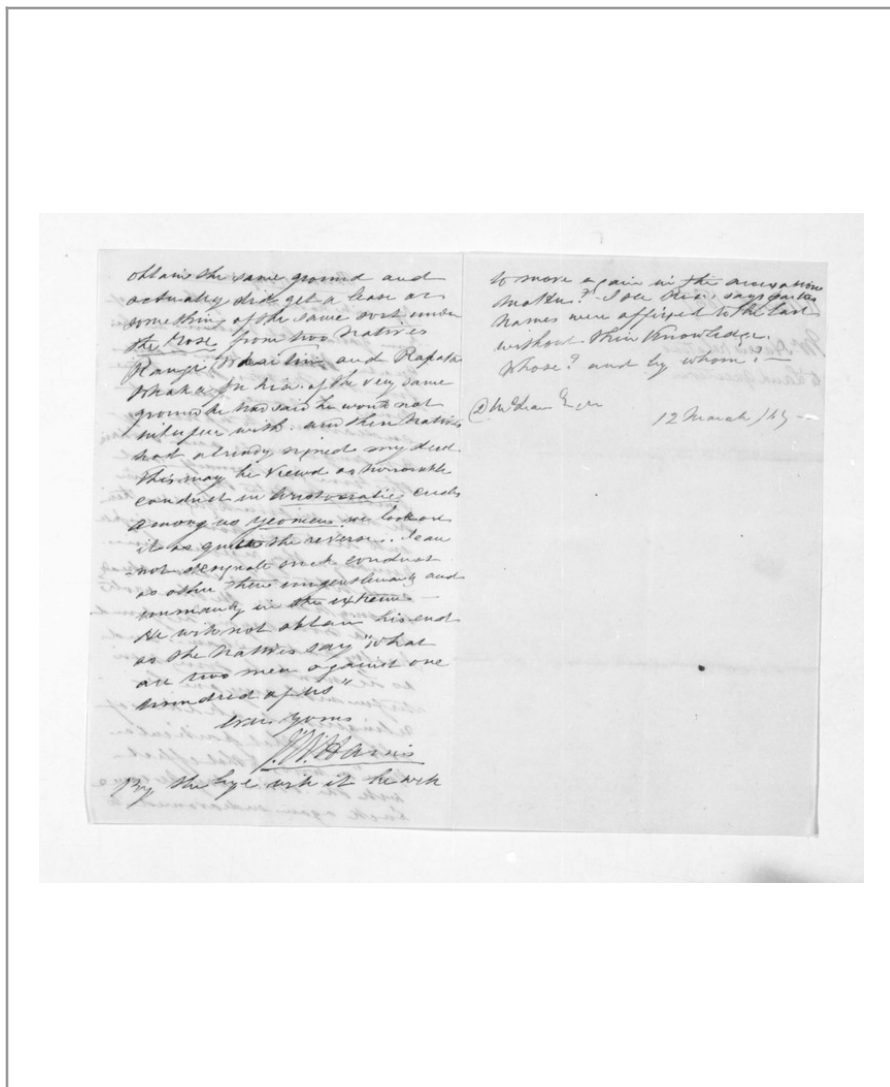 obtain the same ground and
actually did get a lease or
something of the same sort under
the Rose from two Natives
Rangi and Rapata
Whaka of the very same
ground he had said he would not
interfere with. and these Natives
had already signed my deed.
This may be viewd as honorable
conduct in Aristocratic circles
among us yeomens we look on
it as quite the reverse. I can
not designate such conduct
as other then ungentlemanly and
unmanly in the extreme —
He will not obtain his end
as the Natives say "What
are two men against one
hundred of us"
Ever yours
J.W. Harris
By the bye will it be well
to move again in the annexation
matter? I see says
Names were affixed to the last
without their Knowledge.
Whose? and by whom?
D McLean Esqre
12 March /69